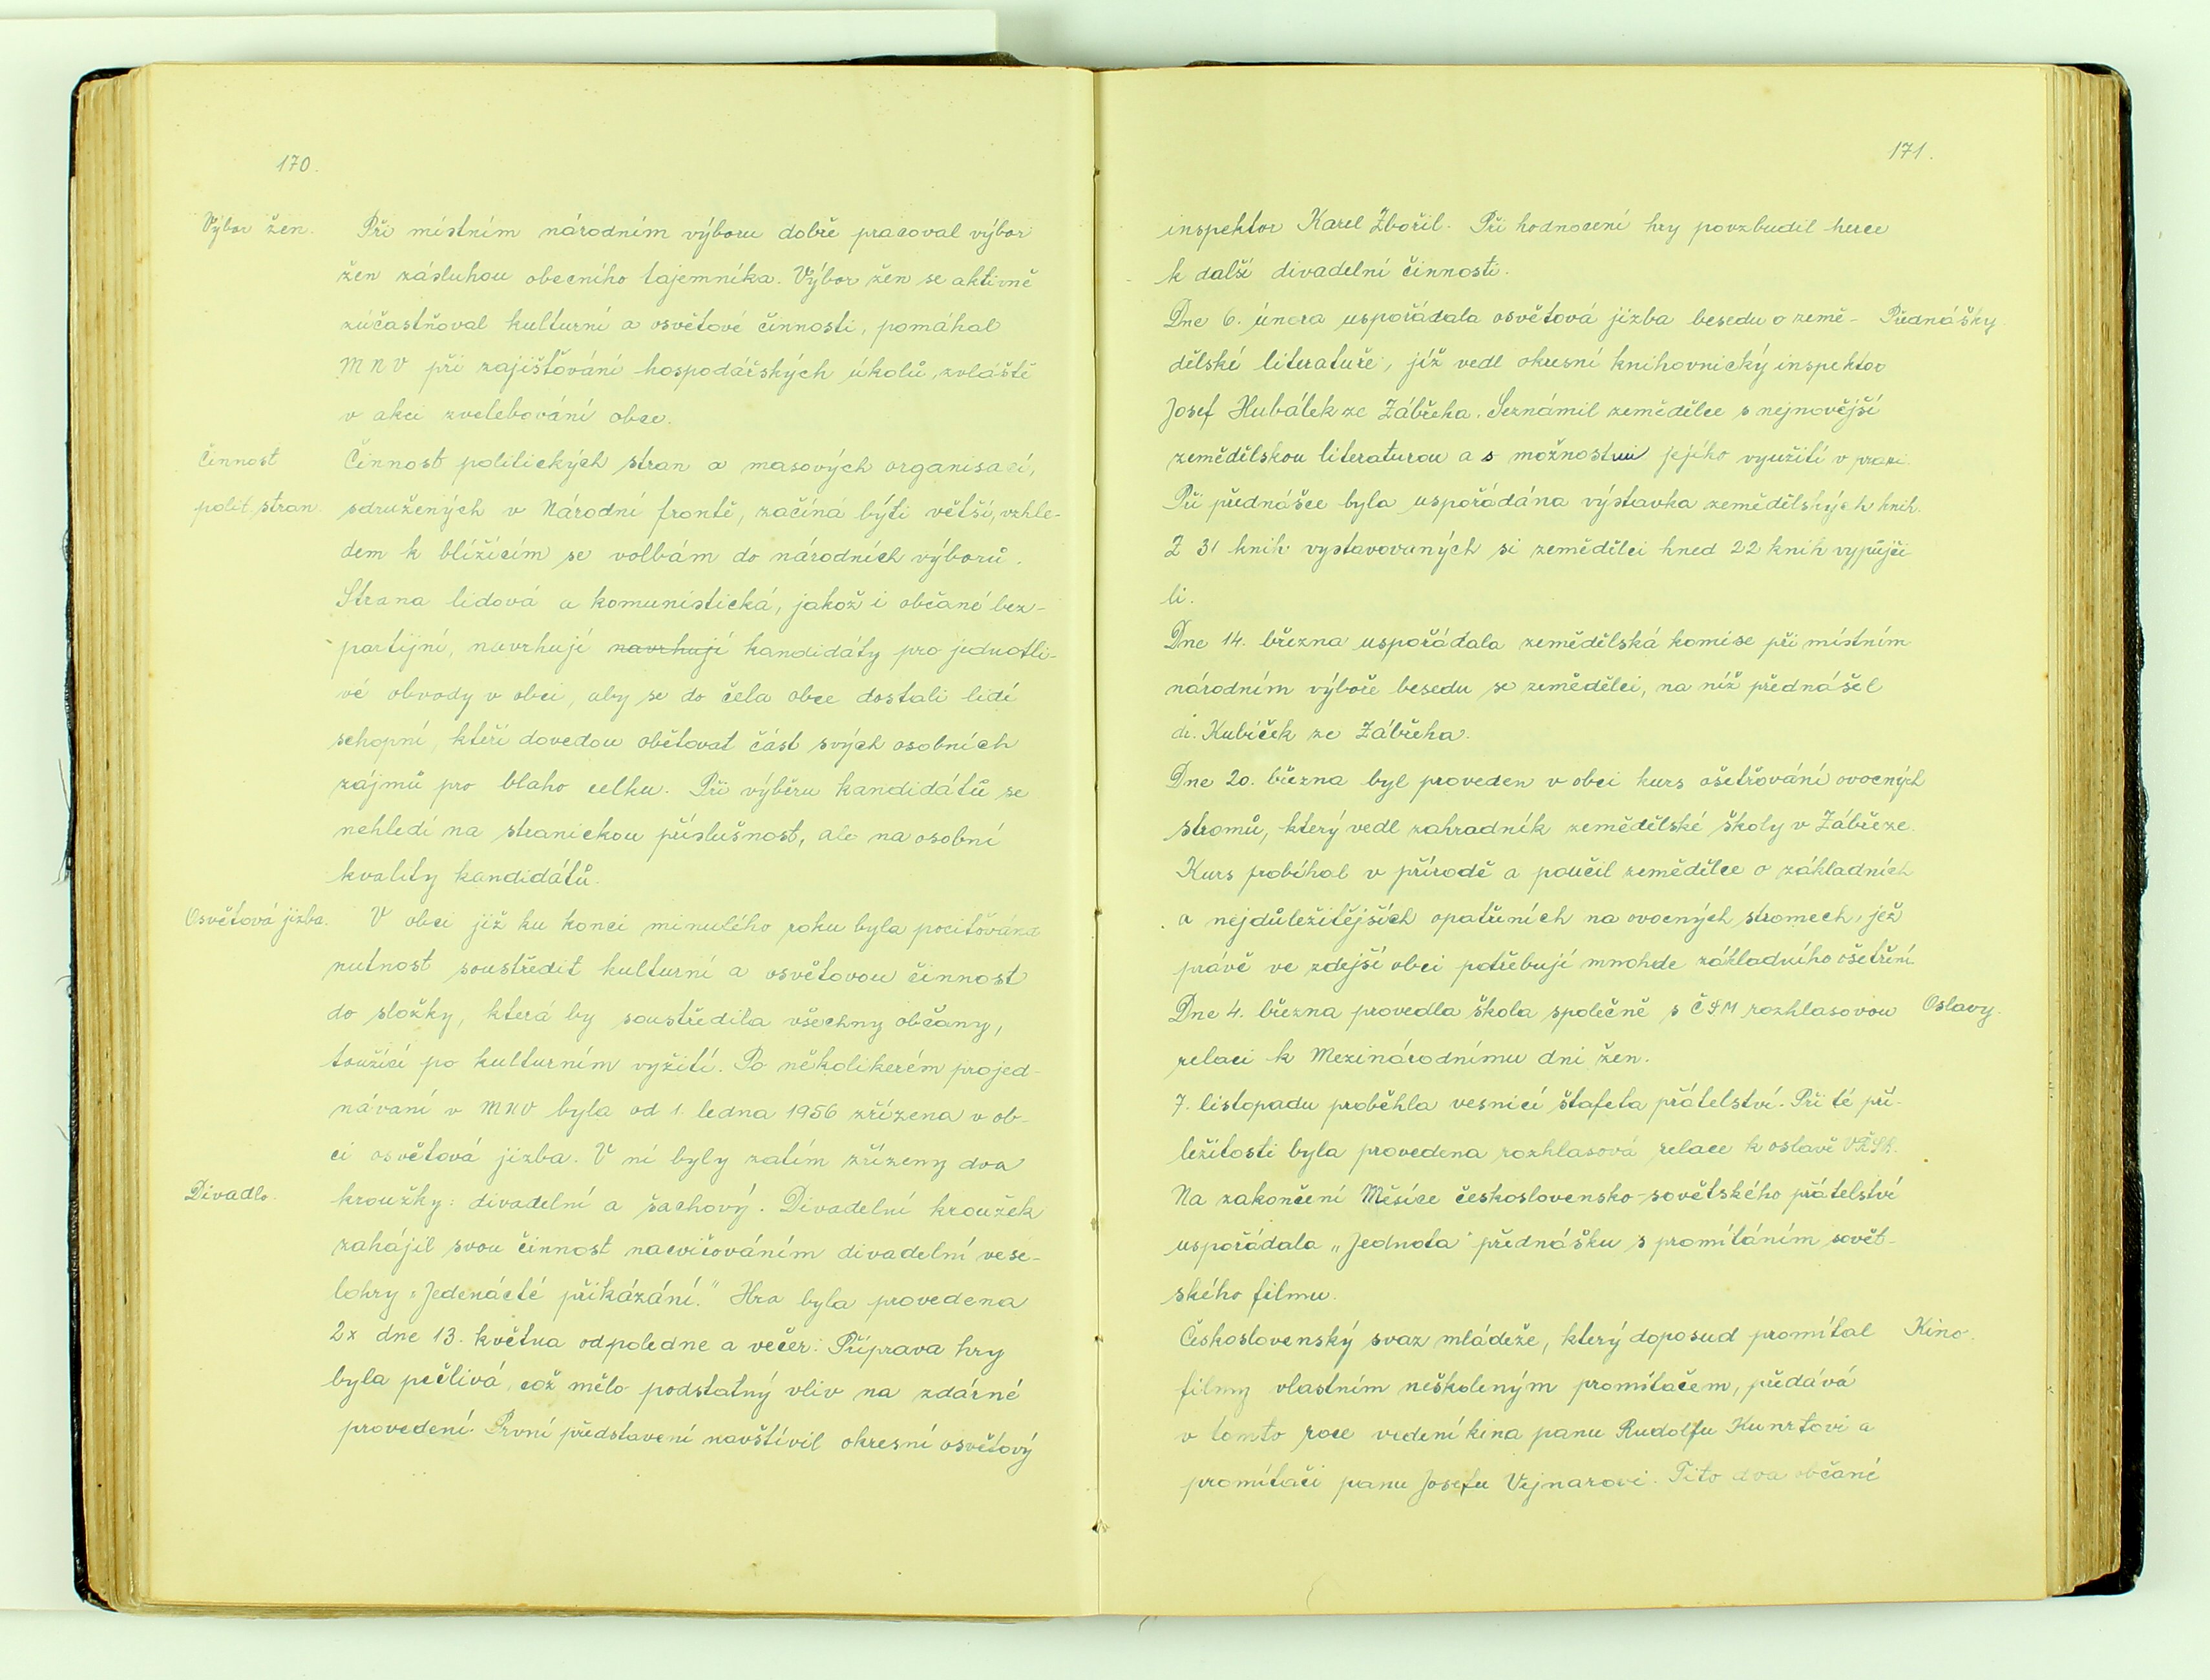 170.
Výbor žen. Při místním národním výboru dobře pracoval výbor
žen zásluhou obecního tajemníka. Výbor žen se aktivně
zúčastňoval kulturní a osvětové činnosti, pomáhal
MNV při zajišťování hospodářských úkolů, zvláště
v akci zvelebování obce.
Činnost Činnost politických stran a masových organisací,
polit. stran. sdružených v Národní frontě, začíná býti větší, vzhle-
dem k blížícím se volbám do národních výborů.
Strana lidová a komunistická, jakož i občané bez-
partijní, navrhují navrhují kandidáty pro jednotli-
vé obvody v obci, aby se do čela obce dostali lidí
schopní, kteří dovedou obětovat část svých osobních
zájmů pro blaho celku. Při výběru kandidátů se
nehledí na stranickou příslušnost, ale na osobní
kvality kandidátů.
Osvětová jizba. V obci již ku konci minulého roku byla pociťována
nutnost soustředit kulturní a osvětovou činnost
do složky, která by soustředila všechny občany,
toužící po kulturním vyžití. Po několikerém projed-
návaní v MNV byla od 1. ledna 1956 zřízena v ob-
ci osvětová jizba. V ní byly zatím zřízeny dva
Divadlo. kroužky: divadelní a šachový. Divadelní kroužek
zahájil svou činnost nacvičováním divadelní vese-
lohry „Jedenácté přikázání." Hra byla provedena
2x dne 13. května odpoledne a večer. Příprava hry
byla pečlivá, což mělo podstatný vliv na zdárné
provedení. První představení navštívil okresní osvětový
171.
inspektor Karel Zbořil. Při hodnocení hry povzbudil herce
k další divadelní činnosti.
Dne 6. února uspořádala osvětová jizba besedu o země- Přednášky.
dělské literatuře, jíž vedl okresní knihovnický inspektor
Josef Hubálek ze Zábřeha. Seznámil zemědělce s nejnovější
zemědělskou literaturou a s možnostmi jejího využití v praxi.
Při přednášce byla uspořádána výstavka zemědělských knih.
Z 31 knih vystavovaných si zemědělci hned 22 knih vypůjči
li.
Dne 14. března uspořádala zemědělská komise při místním
národním výboře besedu se zemědělci, na níž přednášel
dr. Kubíček ze Zábřeha.
Dne 20. března byl proveden v obci kurs ošetřování ovocných
stromů, který vedl zahradník zemědělské školy v Zábřeze.
Kurs probíhal v přírodě a poučil zemědělce o základních
a nejdůležitějších opatřeních na ovocných stromech, jež
právě ve zdejší obci potřebují mnohde základního ošetření.
Dne 4. března provedla škola společně s ČSM rozhlasovou Oslavy.
relaci k Mezinárodnímu dni žen.
7. listopadu proběhla vesnicí štafeta přátelství. Při té pří-
ležitosti byla provedena rozhlasová relace k oslavě VŘSR.
Na zakončení Měsíce československo-sovětského přátelství
uspořádala „Jednota" přednášku s promítáním sovět-
ského filmu.
Československý svaz mládeže, který doposud promítal Kino.
filmy vlastním neškoleným promítačem, předává
v tomto roce vedení kina panu Rudolfu Kunrtovi a
promítači panu Josefu Vejnarovi. Tito dva občané